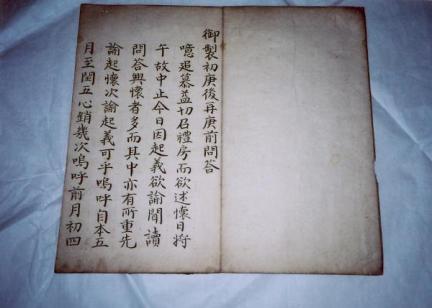 御製初庚後再庚前問答
噫追慕益切召禮房而欲述懷日將
午故中止今日因起義欲諭聞讀
問答興懷者多而其中亦有所重先
諭起懷次諭起義可乎嗚呼自本五
月至閏五心銷幾次嗚呼前月初四